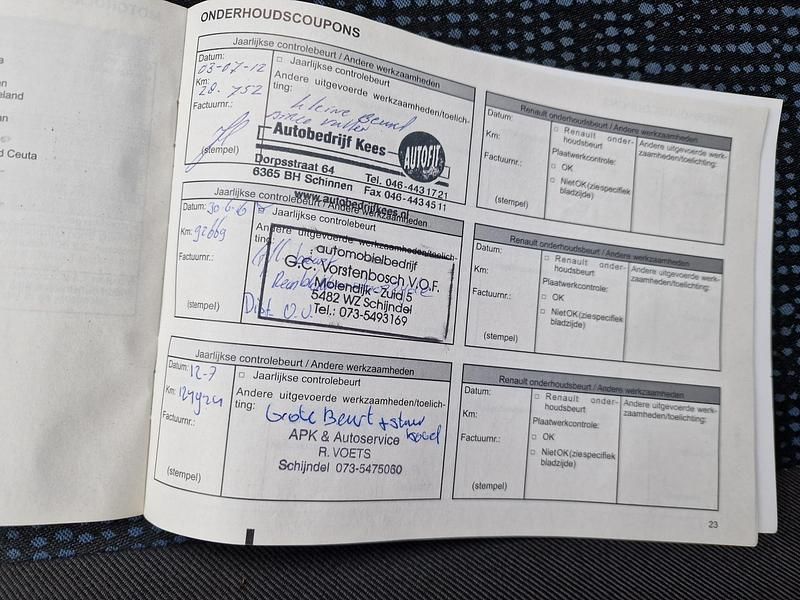 eland
an
d Ceuta
ONDERHOUDSCOUPONS
Jaarlijkse controlebeurt / Andere werkzaamheden
Datum:
03-07-12
Km:
28.752
Factuurnr.:
(stempel)
□ Jaarlijkse controlebeurt
Andere uitgevoerde werkzaamheden/toelich-
ting:
kleine Beurt
Autobedrijf Kees
AUTOFIT
Dorpsstraat 64
Tel. 046-443 17 21
6365 BH Schinnen
Fax 046-443 45 11
www.autobedrijfkees.nl
Renault onderhoudsbeurt / Andere werkzaamheden
Datum:
Km:
Factuurnr.:
(stempel)
□ Renault onder-
houdsbeurt
Plaatwerkcontrole:
□ OK
□ Niet OK (zie specifiek
bladzijde)
Andere uitgevoerde werk-
zaamheden/toelichting:
Jaarlijkse controlebeurt / Andere werkzaamheden
Datum:
Km: 92669
Factuurnr.:
(stempel)
Jaarlijkse controlebeurt
Andere uitgevoerde werkzaamheden/toelich-
ting:
automobielbedrijf
G.C. Vorstenbosch V.O.F.
Molendijk-Zuid 5
5482 WZ Schijndel
Tel.: 073-5493169
Renault onderhoudsbeurt / Andere werkzaamheden
Datum:
Km:
Factuurnr.:
(stempel)
□ Renault onder-
houdsbeurt
Plaatwerkcontrole:
□ OK
□ Niet OK (zie specifiek
bladzijde)
Andere uitgevoerde werk-
zaamheden/toelichting:
Jaarlijkse controlebeurt / Andere werkzaamheden
Datum: 12-7
Km:
Factuurnr.:
(stempel)
□ Jaarlijkse controlebeurt
Andere uitgevoerde werkzaamheden/toelich-
ting:
Grote Beurt + stuur
kogel
APK & Autoservice
R. VOETS
Schijndel 073-5475060
Renault onderhoudsbeurt / Andere werkzaamheden
Datum:
Km:
Factuurnr.:
(stempel)
□ Renault onder-
houdsbeurt
Plaatwerkcontrole:
□ OK
□ Niet OK (zie specifiek
bladzijde)
Andere uitgevoerde werk-
zaamheden/toelichting:
23